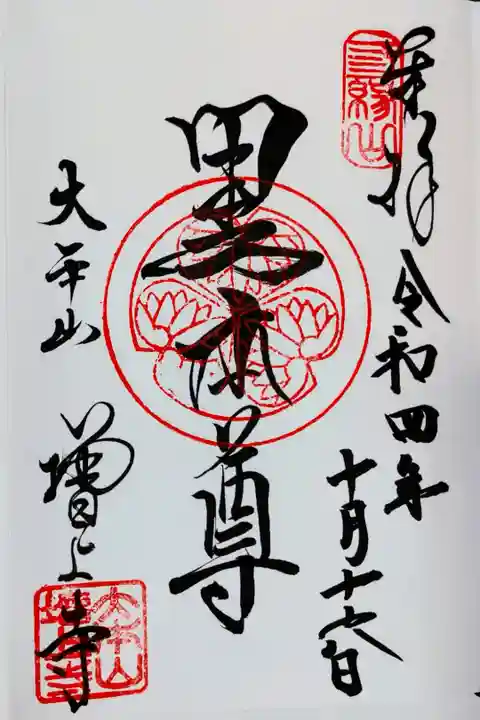 三縁山
奉拝 令和四年
十月十六日
黒本尊
大本山
増上寺
大本山
増上寺